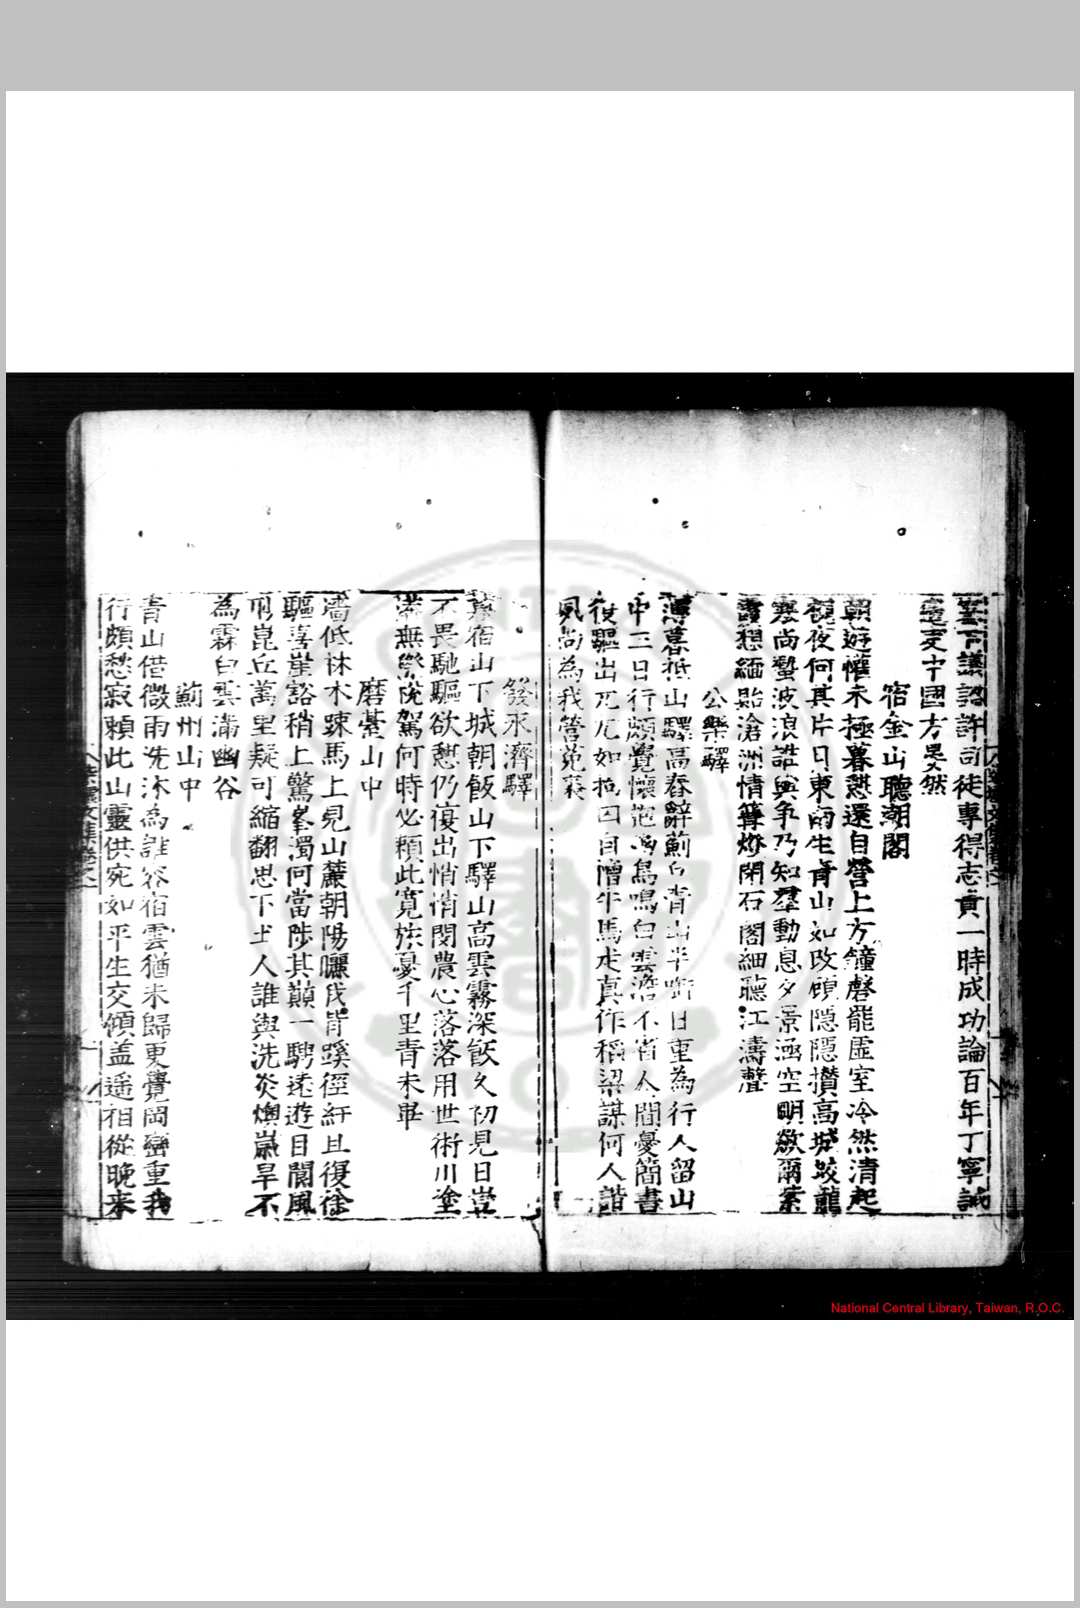 議謬許司徒專得志責一時成功論百年丁寧誠
遠支中國方畢然
宿金山聽潮閣
朝遊懽未極暮憩還自營上方鐘磬罷虛室冷然清起
視夜何其片月東海生青山如改顔隱隱攢高城蛟龍
寒尚蟄波浪誰與爭乃知羣動息夕景涵空明歘爾縈
想緬貽滄洲情篝燈閉石閣細聽江濤聲
公樂驛
薄暮抵山驛高舂辭薊白青山半銜日重為行人留山
中三日行頗覺懷抱鳥鳴白雲澹不省人間憂簡書
促驅出兀兀如拘囚自憎牛馬走真作稻粱謀何人諧
夙尚為我營菟裘
發永濟驛
暮宿山下城朝飯山下驛山高雲霧深飯久初見日豈
不畏馳驅欲憩仍復出悄悄閔農心落落用世術川塗
莽無際稅駕何時必賴此寬旅憂千里青未畢
磨縈山中
墻低林木疎馬上見山麓朝陽曬我背蹊徑紆且復徐
驅喜崖谿稍上驚峯濁何當陟其巔一騁遠遊目閬風
崑丘萬里疑可縮翻思下土人誰與洗炎燠歲旱不
為霖白雲滿幽谷
薊州山中
青山借微雨洗沐為誰容宿雲猶未歸更覺岡巒重我
行頗愁寂賴此山靈供宛如平生交傾盖遥相從晚来
National Central Library, Taiwan, R.O.C.